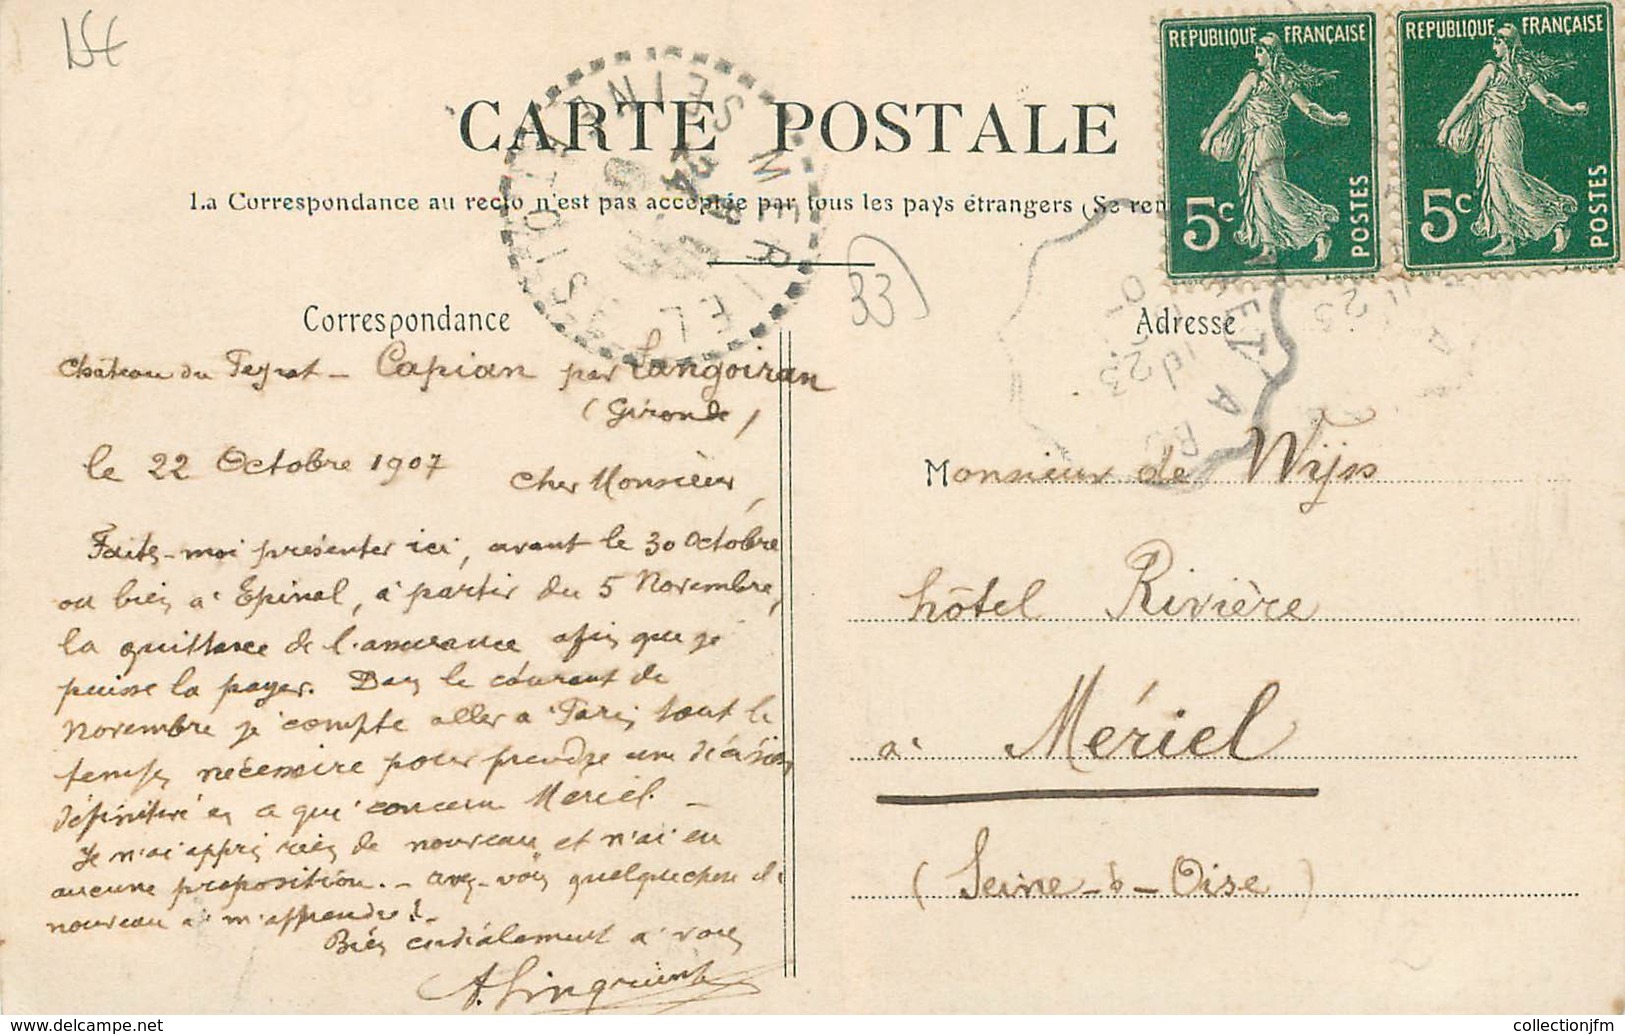 15€
REPUBLIQUE FRANÇAISE
5c POSTES
REPUBLIQUE FRANÇAISE
5c POSTES
CARTE POSTALE
La Correspondance au recto n'est pas acceptée par tous les pays étrangers (Se ren
MERIEL
SEINE ET OISE
33
Correspondance
Château du Peyrat - Capian par Langoiran
(Gironde)
le 22 Octobre 1907
Cher Monsieur,
Faites-moi présenter ici, avant le 30 Octobre
ou bien à Epinal, à partir du 5 Novembre,
la quittance de l'assurance afin que je
puisse la payer. Dans le courant de
Novembre je compte aller à Paris tout le
temps nécessaire pour prendre une décision
définitive en ce qui concerne Mériel. -
Je n'ai appris rien de nouveau et n'ai eu
aucune proposition. - avez-vous quelquechose de
nouveau à m'apprendre? -
Bien cordialement à vous
Adresse
Monsieur de Wijs
hôtel Rivière
à Mériel
(Seine-&-Oise)
www.delcampe.net
collectionjfm